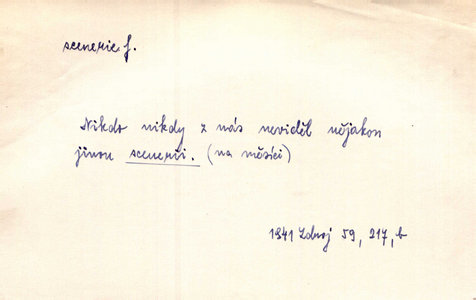 scenerie f.
Nikdo nikdy z nás neviděl nějakou
jinou scenerii. (na měsíci)
1941 Zdroj 59, 217, b